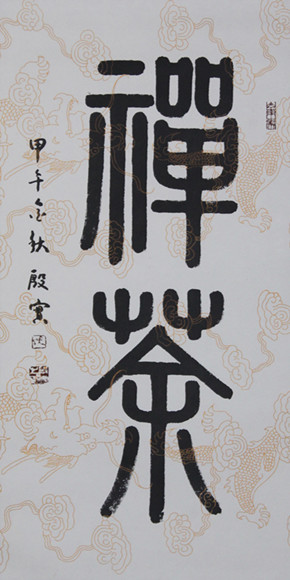 禪茶
甲午金秋殷實